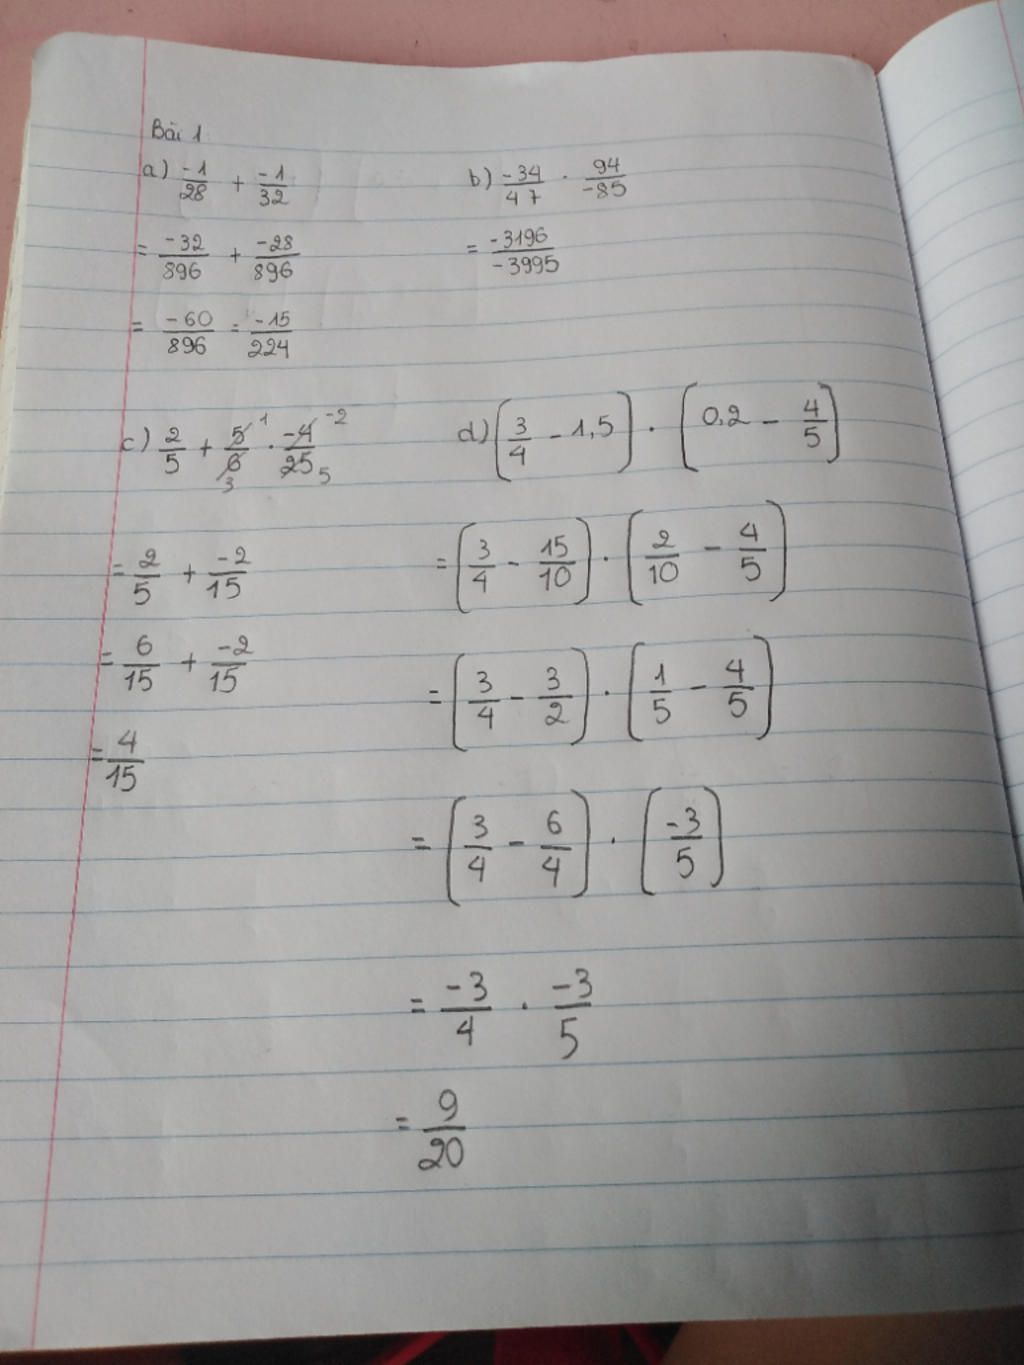 Bài 1.
a) -1/28 + -1/32
= -32/896 + -28/896
= -60/896 = -15/224
b) -34/47 · 94/-85
= -3196/-3995
c) 2/5 + 5/6 · -4/25 1 3 -2 5
= 2/5 + -2/15
= 6/15 + -2/15
= 4/15
d) (3/4 - 1,5) · (0,2 - 4/5)
= (3/4 - 15/10) · (2/10 - 4/5)
= (3/4 - 3/2) · (1/5 - 4/5)
= (3/4 - 6/4) · (-3/5)
= -3/4 · -3/5
= 9/20